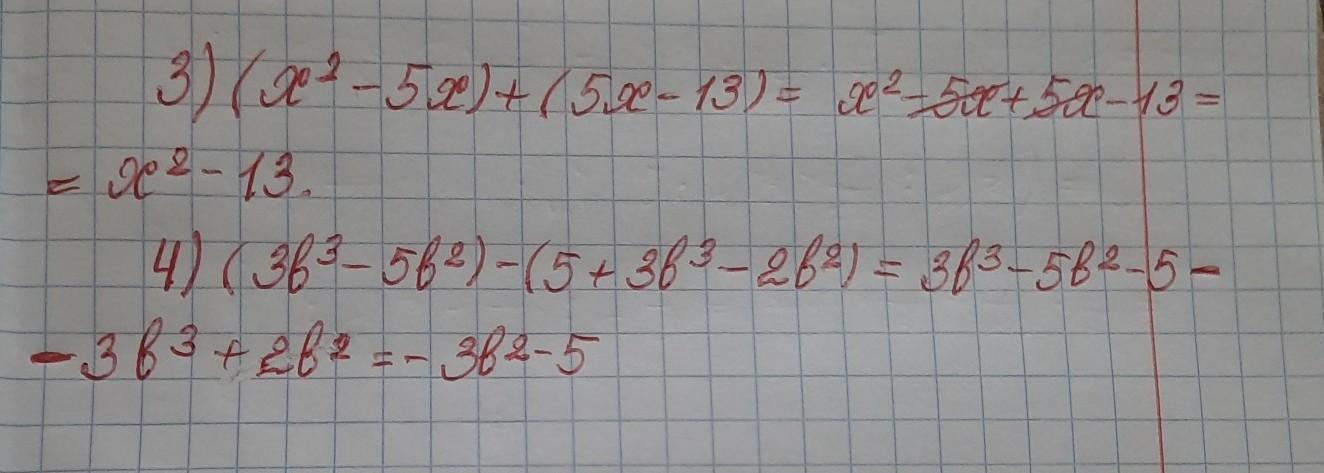 3) (x² - 5x) + (5x - 13) = x² - 5x + 5x - 13 =
= x² - 13.
4) (3b³ - 5b²) - (5 + 3b³ - 2b²) = 3b³ - 5b² - 5 -
- 3b³ + 2b² = - 3b² - 5